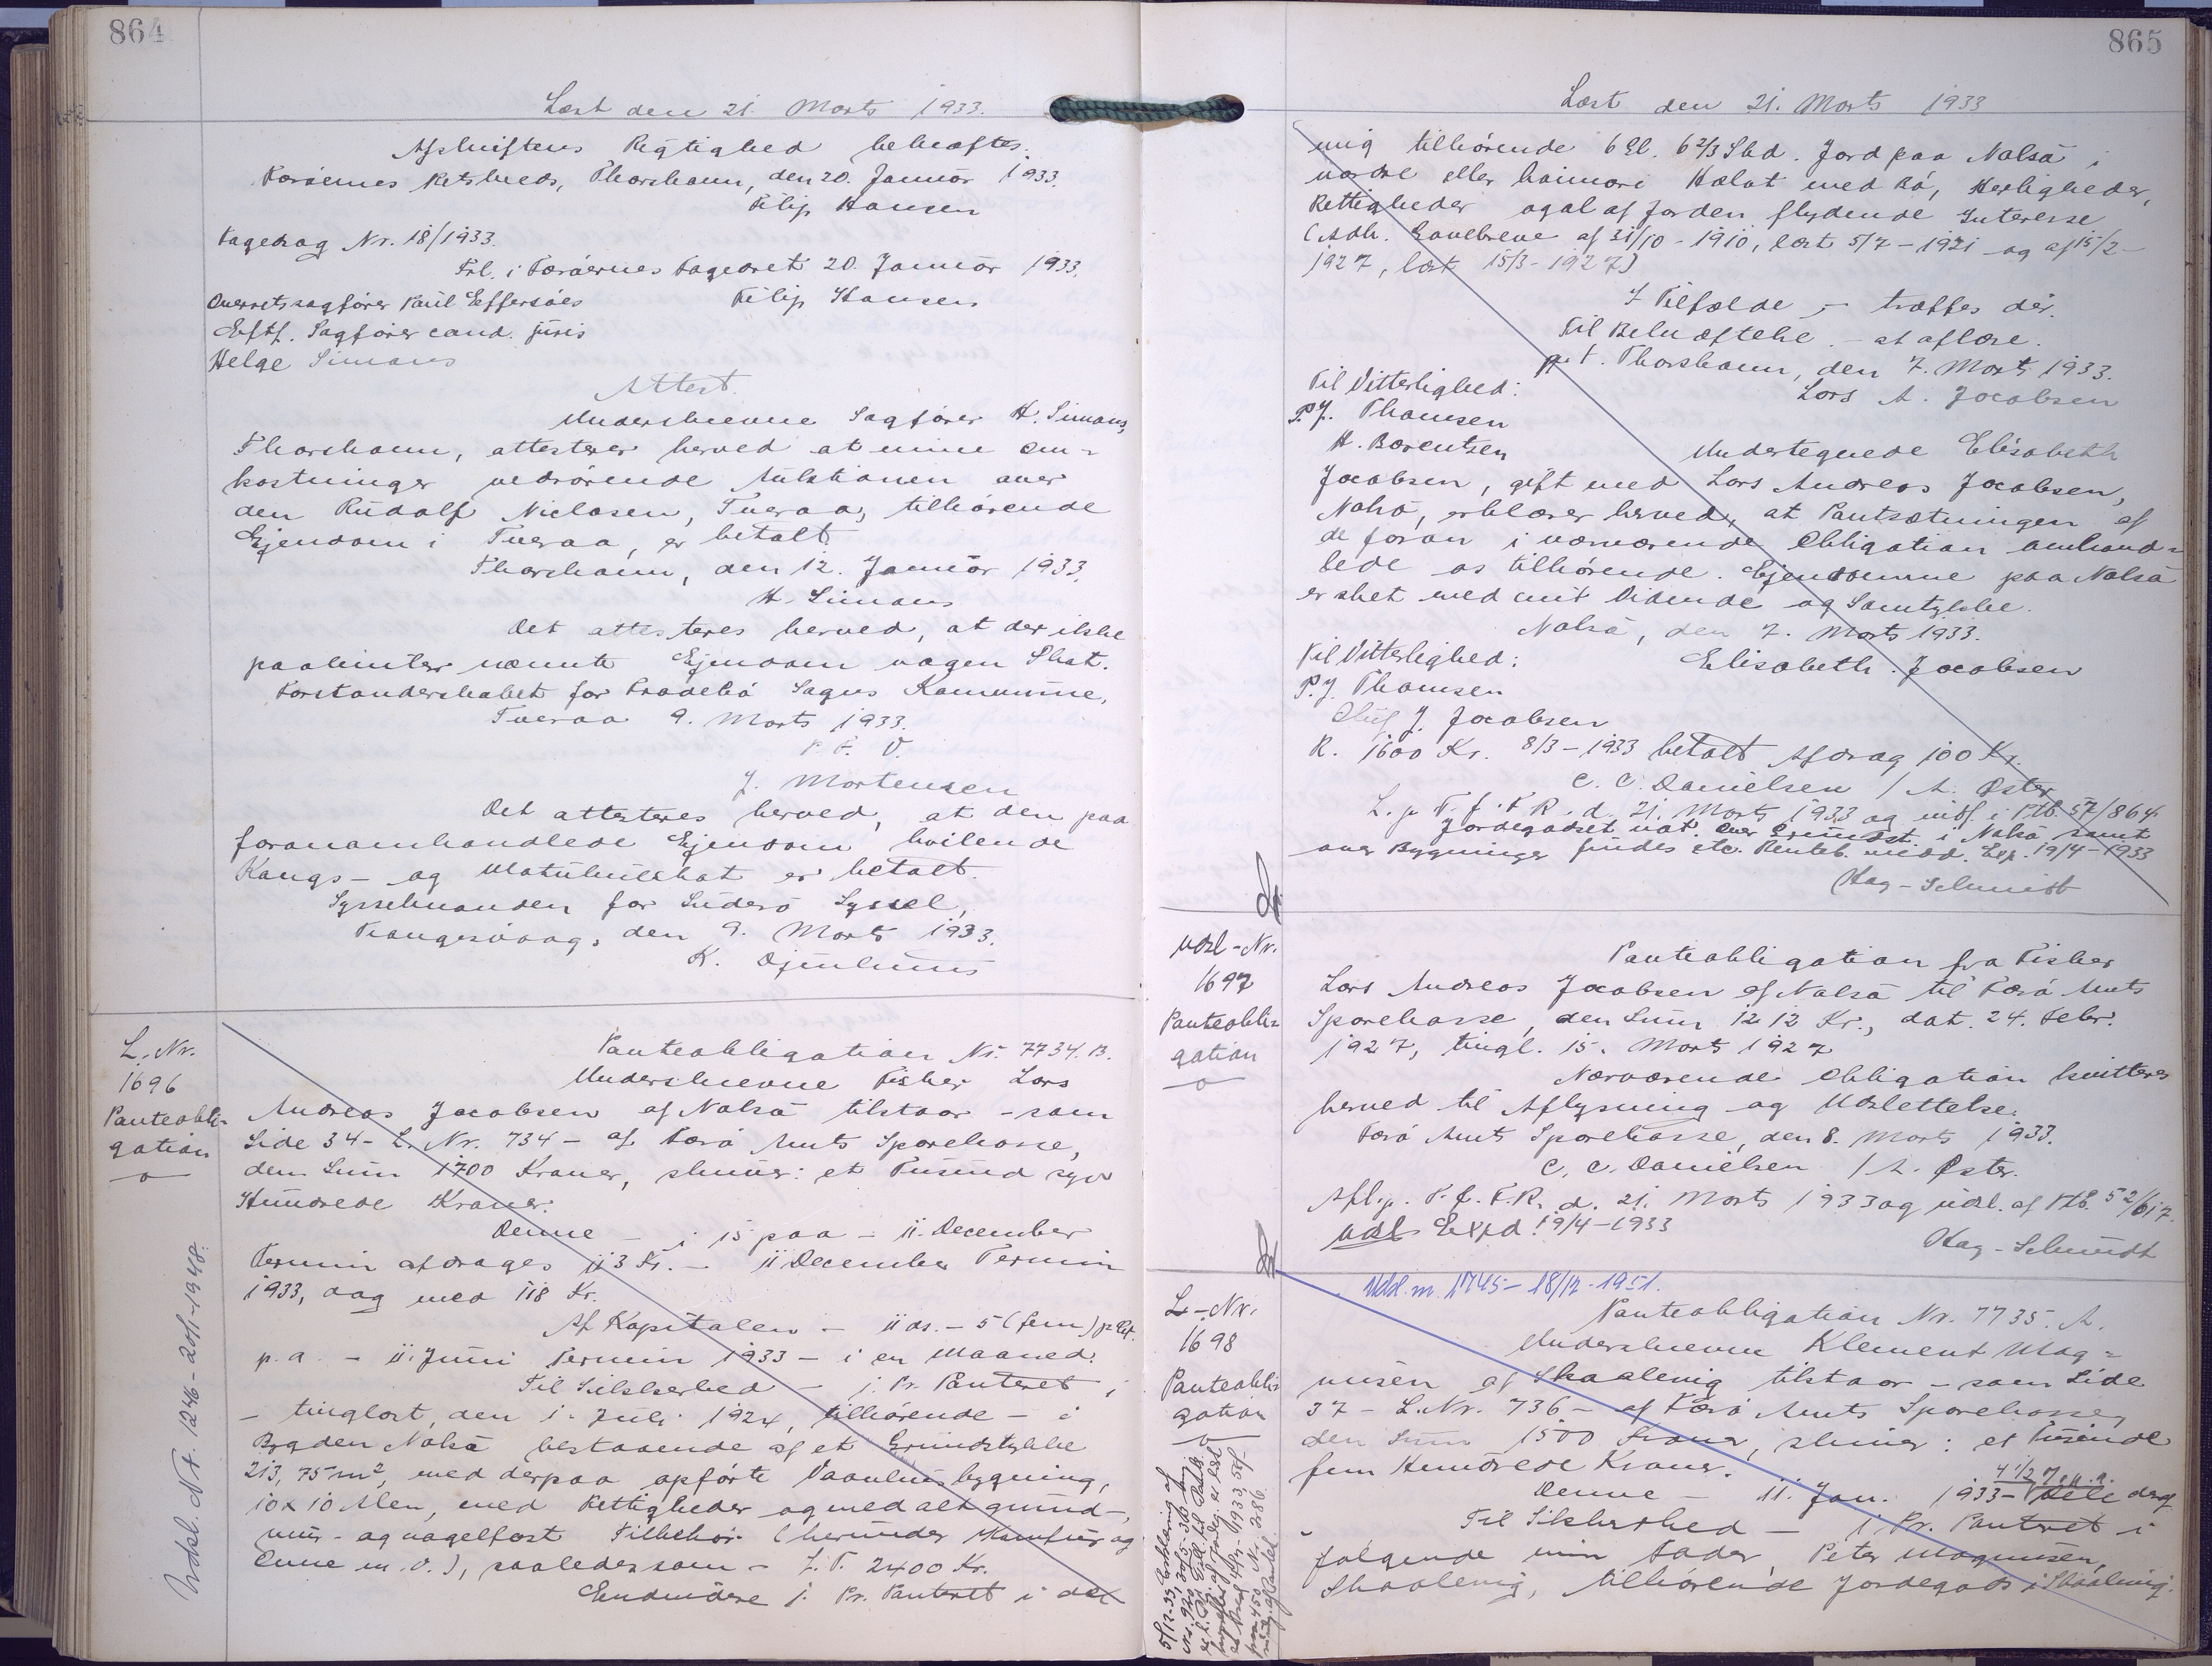 864
Læst den 21. Marts 1933.
Afskriftens Rigtighed bekræftes.
Færøernes Retskreds, Thorshavn, den 20. Januar 1933.
Filip Hansen
Fagedrag Nr. 18/1933.
Frl. i Færøernes Fogedret 20. Januar 1933.
Overretssagfører Paul Effersøes
Filip Hansen
Eftf. Sagfører cand. juris
Helge Simans
Attest.
Underskrevne Sagfører H. Simans,
Thorshavn, attesterer herved at mine Om=
kostninger vedrørende Auktionen over
den Rudolf Niclasen, Tveraa, tilhørende
Ejendom i Tveraa, er betalt.
Thorshavn, den 12. Januar 1933.
H. Simans
Det attesteres herved, at der ikke
paahviler nævnte Ejendom nogen Skat.
Forstanderskabet for Frodebø Sogns Kommune,
Tveraa 9. Marts 1933.
P. F. V.
J. Mortensen
Det attesteres herved, at den paa
foranomhandlede Ejendom hvilende
Kongs- og Matrikulskat er betalt.
Sysselmanden for Suderø Syssel,
Trangisvaag, den 9. Marts 1933.
K. Djurhuus
L. Nr.
1696
Panteobli=
gation
Panteobligation Nr. 7734. B.
Underskrevne Fisker Lars
Andreas Jacobsen af Nolsø tilstaar - som
Side 34 - L. Nr. 734 - af Færø Amts Sparekasse,
den Sum 1700 Kroner, skriver: et Tusind syv
Hundrede Kroner.
Denne - i 15 paa - 11. December
Termin afdrages 113 Kr. - 11 December Termin
1933, dog med 118 Kr.
Af Kapitalen - 11 ds. - 5 (fem) pCt.
p.a. - 11. Juni Termin 1933 - i en Maaned.
Til Sikkerhed - j. Pr. Panteret i
- tinglæst, den 1. Juli 1924, tilhørende - i
Bygden Nolsø bestaaende af et Grundstykke
213,75 m², med derpaa opførte Vaaningsbygning,
10 x 10 Alen, med Rettigheder og med alt grund-,
mur- og nagelfast Tilbehør (herunder Komfur og
Ovne m.v.), saaledes som - F. T. 2400 Kr.
Endvidere j. Pr. Panteret i det
Udsl. Nr. 1246 - 20/1-1948.
865
Læst den 21. Marts 1933
mig tilhørende 6 Gl. 6 2/3 Skd. Jord paa Nolsø i
nordre eller heimari Halvt med Bø, Herligheder,
Rettigheder og al af Jorden flydende Interesse
(Adk. Gavebreve af 31/10 - 1910, læst 5/7 - 1921 og af 15/2 -
1927, læst 15/3 - 1927)
I Tilfælde - træffes dér.
Til Bekræftelse - at aflæse.
p.t. Thorshavn, den 7. Marts 1933.
Til Vitterlighed:
Lars A. Jacobsen
P. J. Thomsen
H. Barentsen
Undertegnede Elisabeth
Jacobsen, gift med Lars Andreas Jacobsen,
Nolsø, erklærer herved, at Pantsætningen af
de foran i nærværende Obligation omhand=
lede os tilhørende Ejendomme paa Nolsø
er sket med mit Vidende og Samtykke.
Nolsø, den 7. Marts 1933.
Til Vitterlighed:
Elisabeth Jacobsen
P. J. Thomsen
Oluf J. Jacobsen
R. 1600 Kr. 8/3 - 1933 betalt Afdrag 100 Kr.
C. C. Danielsen / A. Øster
L. p. T. f. F. R. d. 21. Marts 1933 og indf. i Ptb. 57/864
Jordegodset vat. over Grundst. i Nolsø samt
over Bygninger findes etc. Renteb. medd. Exp. 19/4 - 1933
Hag-Schmidt
Udsl-Nr.
1697
Panteobli=
gation
Panteobligation fra Fisker
Lars Andreas Jacobsen af Nolsø til Færø Amts
Sparekasse, den Sum 1212 Kr., dat. 24. Febr.
1927, tingl. 15. Marts 1927
Nærværende Obligation kvitteres
herved til Aflysning og Udslettelse.
Færø Amts Sparekasse, den 8. Marts 1933.
C. C. Danielsen / A. Øster.
Afl. p. T. f. F. R. d. 21. Marts 1933 og udsl. af Ptb. 52/617.
udl Expd. 19/4-1933
Hag-Schmidt
Udsl. m. 1745 - 18/12 - 1951.
L.-Nr.
1698
Panteobli=
gation
Panteobligation Nr. 7735. A.
Underskrevne Klement Mag=
nusen af Skaalevig tilstaar - som Side
37 - L. Nr. 736 - af Færø Amts Sparekasse,
den Sum 1500 Kroner, skriver: et Tusinde
fem Hundrede Kroner.
4 1/2 % p.a.
Denne - 11. Jan. 1933 -
Til Sikkerhed - j. Pr. Panteret i
følgende min Fader, Peter Magnusen,
Skaalevig, tilhørende Jordegods i Skaalevig: